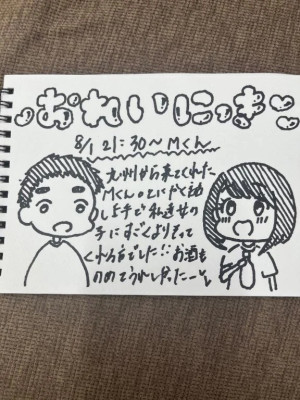 おれいにっき
8/1 21:30〜Mくん
九州から来てくれた
Mくん
し上手で私達女の
子にすごくよりそって
くれる方でした!! お酒も
のめてうれしかったーよ